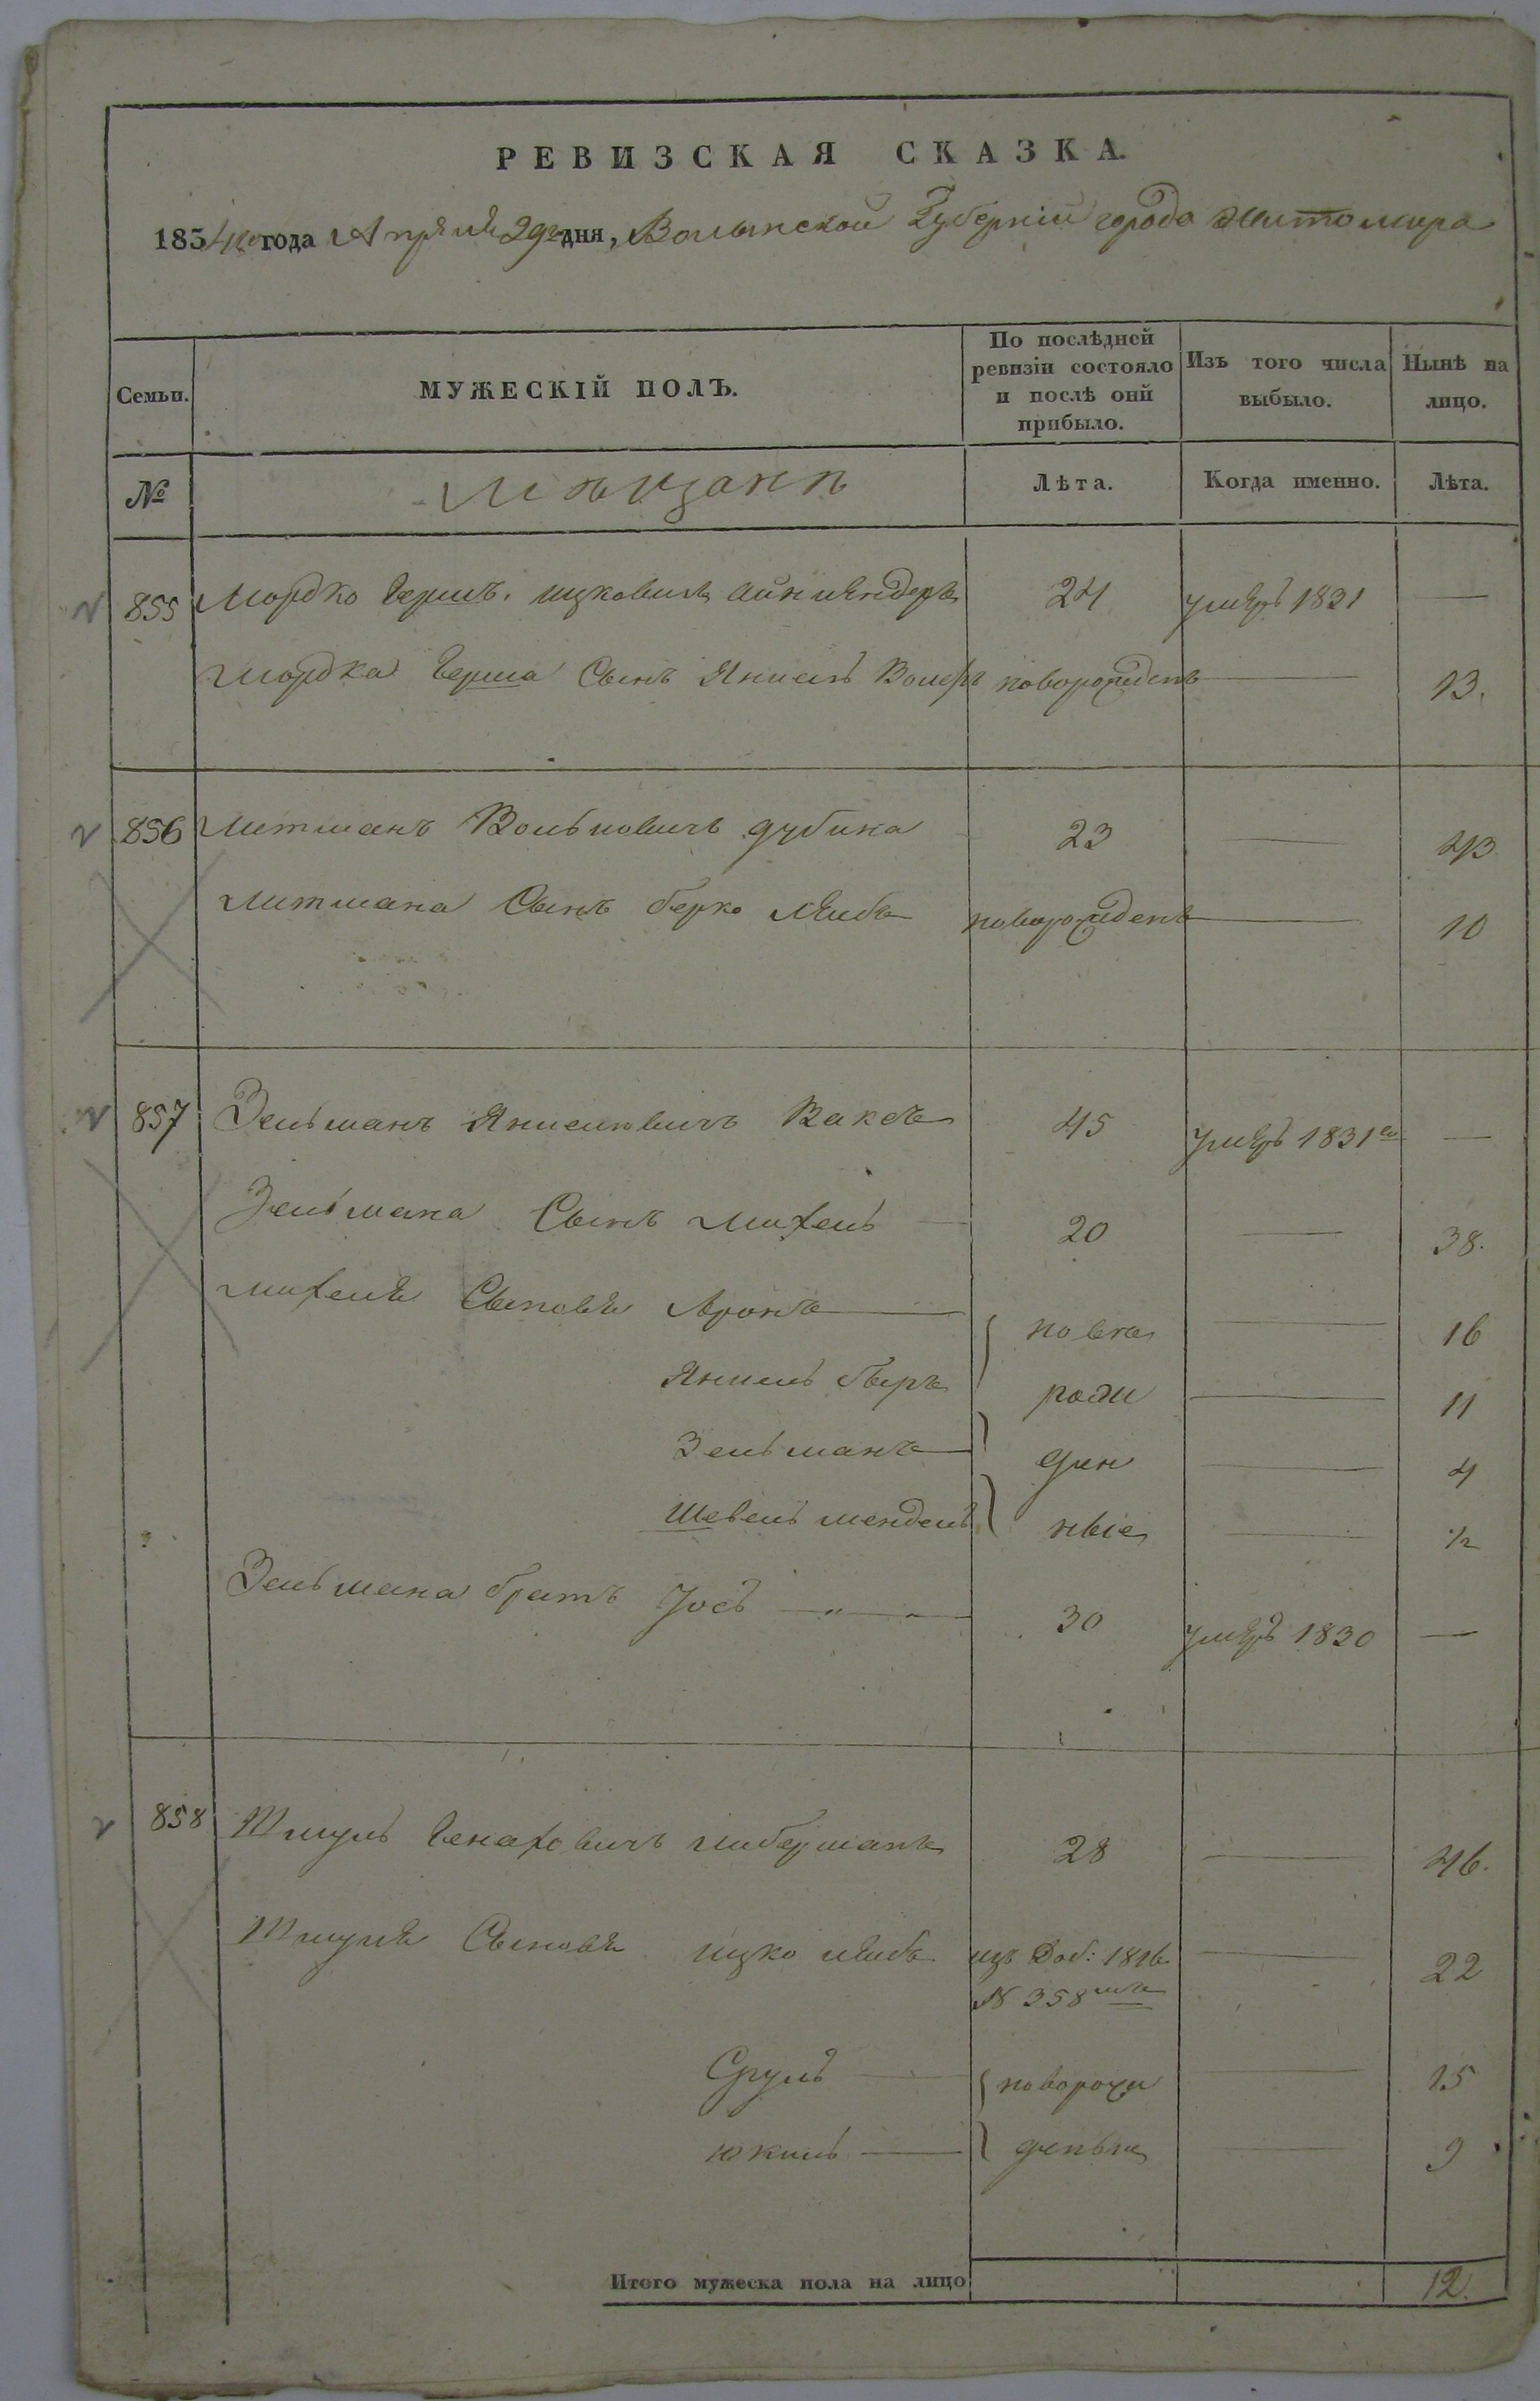 РЕВИЗСКАЯ СКАЗКА.
1834го года Апреля 29го дня, Волынской Губерніи города Житомира
Семьи. МУЖЕСКІЙ ПОЛЪ. По послѣдней ревизіи состояло и послѣ оний прибыло. Изъ того числа выбыло. Нынѣ на лицо.
№ Мѣщанъ Лѣта. Когда именно. Лѣта.
855 Мордко Гершъ Ицковичъ 24 умеръ 1831 —
Мордка Герша Сынъ Янкель Вольфъ новорожденъ — 13.
856 Литманъ Вольковичъ дубина 23 — 43
Литмана Сынъ берко Лейба новорожденъ — 10
857 Зельманъ Янкелювичъ Ваксъ 45 умеръ 1831го —
Зельмана Сынъ михель — 20 — 38.
михеля Сыновья Аронъ — ново — 16
Янкель беръ рож — 11
Зельманъ — ден — 4
Шевель мендель ные — ½
Зельмана братъ Іось — 30 умеръ 1830 —
858 Шмуль Генаховичъ либерманъ 28 — 46.
Шмуля Сыновья ицко лейба изъ Доб: 1816 — 22
N 358мъ
Сруль — новорож — 15
юкиль — деные — 9
Итого мужеска пола на лицо 12.